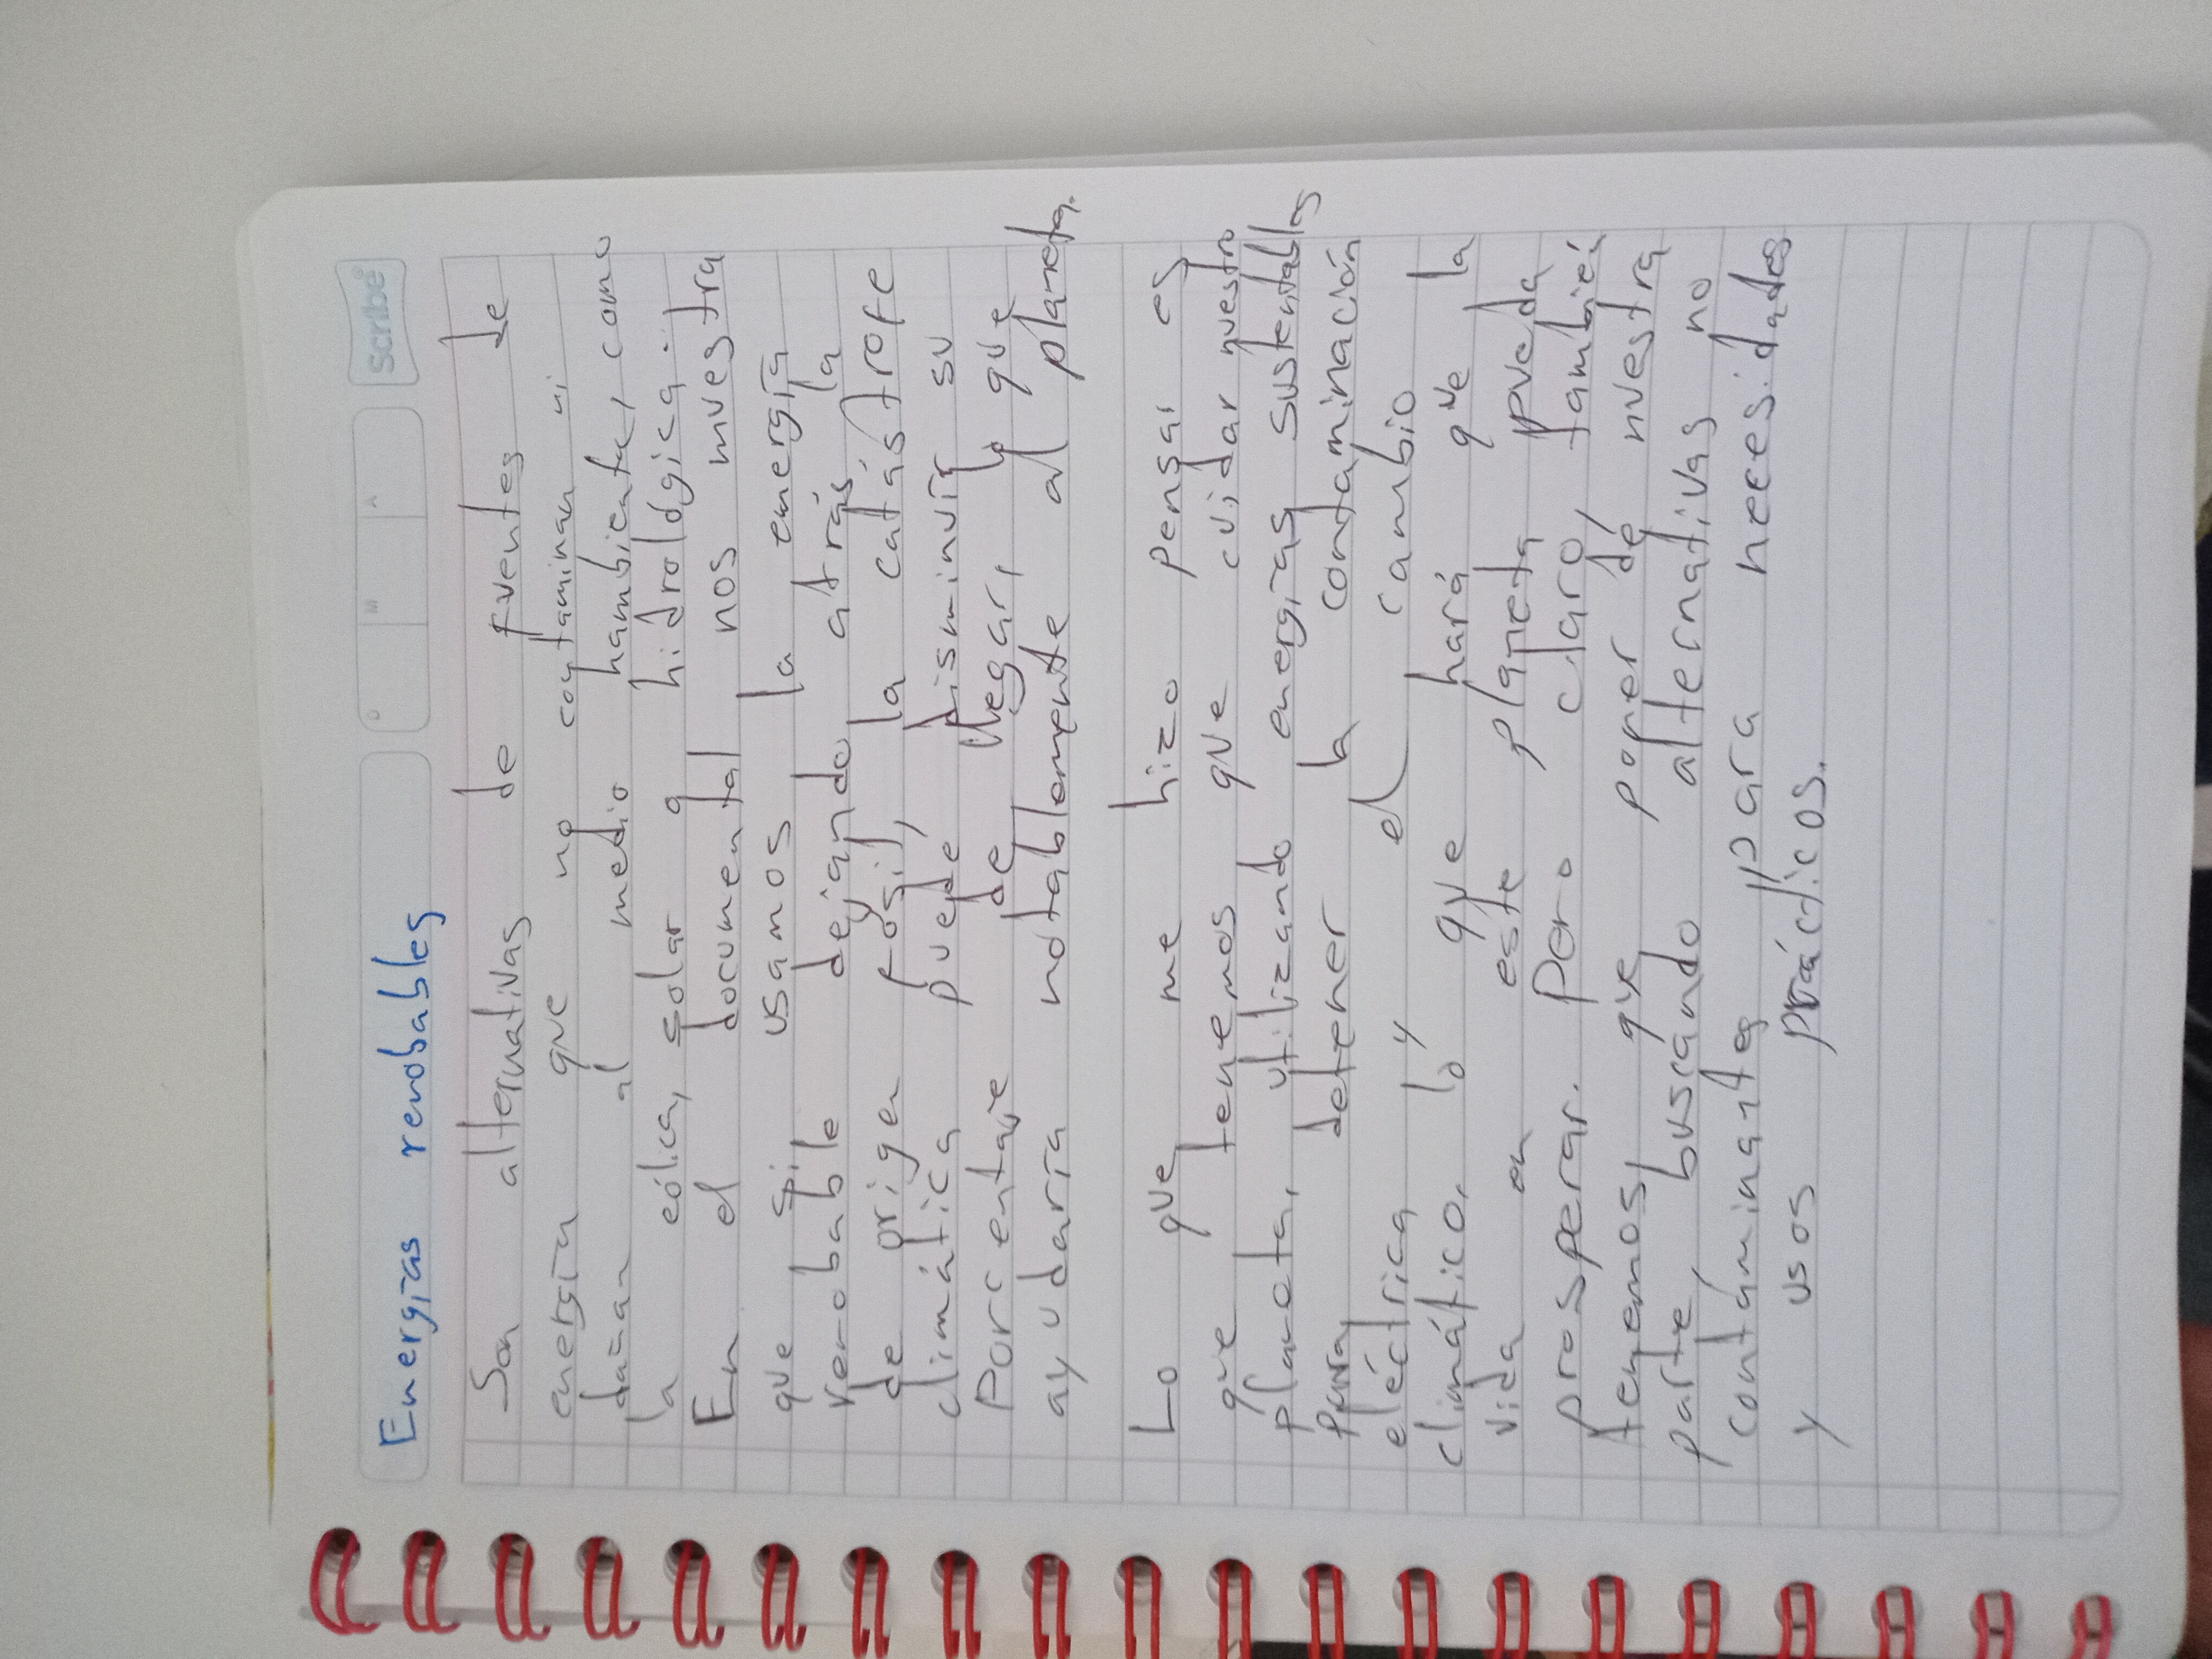 Scribe
D M A
Energías renobables
Son alternativas de fuentes de
energía que no contaminan ni
dañan al medio hambiente, como
la eólica, solar o hidrológica.
En el documental nos muestra
que si usamos la energía
renobable dejando atrás la
de origen fósil, la catástrofe
climática puede disminuir su
porcentaje de llegar, lo que
ayudaría notablemente al planeta.
Lo que me hizo pensar es
que tenemos que cuidar nuestro
planeta, utilizando energías sustentables
para detener la contaminación
eléctrica y el cambio
climático, lo que hará que la
vida en este planeta pueda
prosperar. Pero claro, también
tenemos que poner de nuestra
parte, buscando alternativas no
contaminantes para necesidades
y usos prácticos.